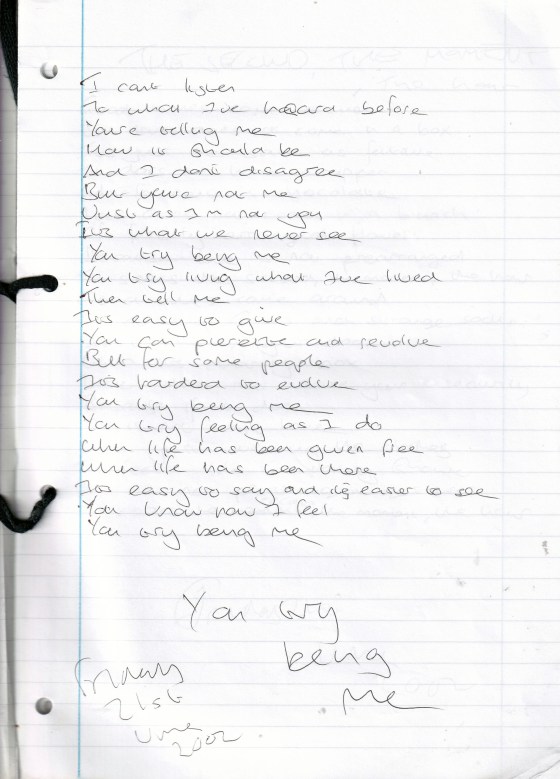 I cant listen
To what Ive heard before
Youre telling me
How it should be
And I dont disagree
But youre not me
Just as Im not you
Its what we never see
You try being me
You try living what Ive lived
Then tell me
Its easy to give
You can and revolve
But for some people
Its to evolve
You try being me
You try feeling as I do
When life has been given free
When life has been there
Its easy to say and its easier to see
You know how I feel
You try being me
You try
being
me
Friday
21st
June
2002